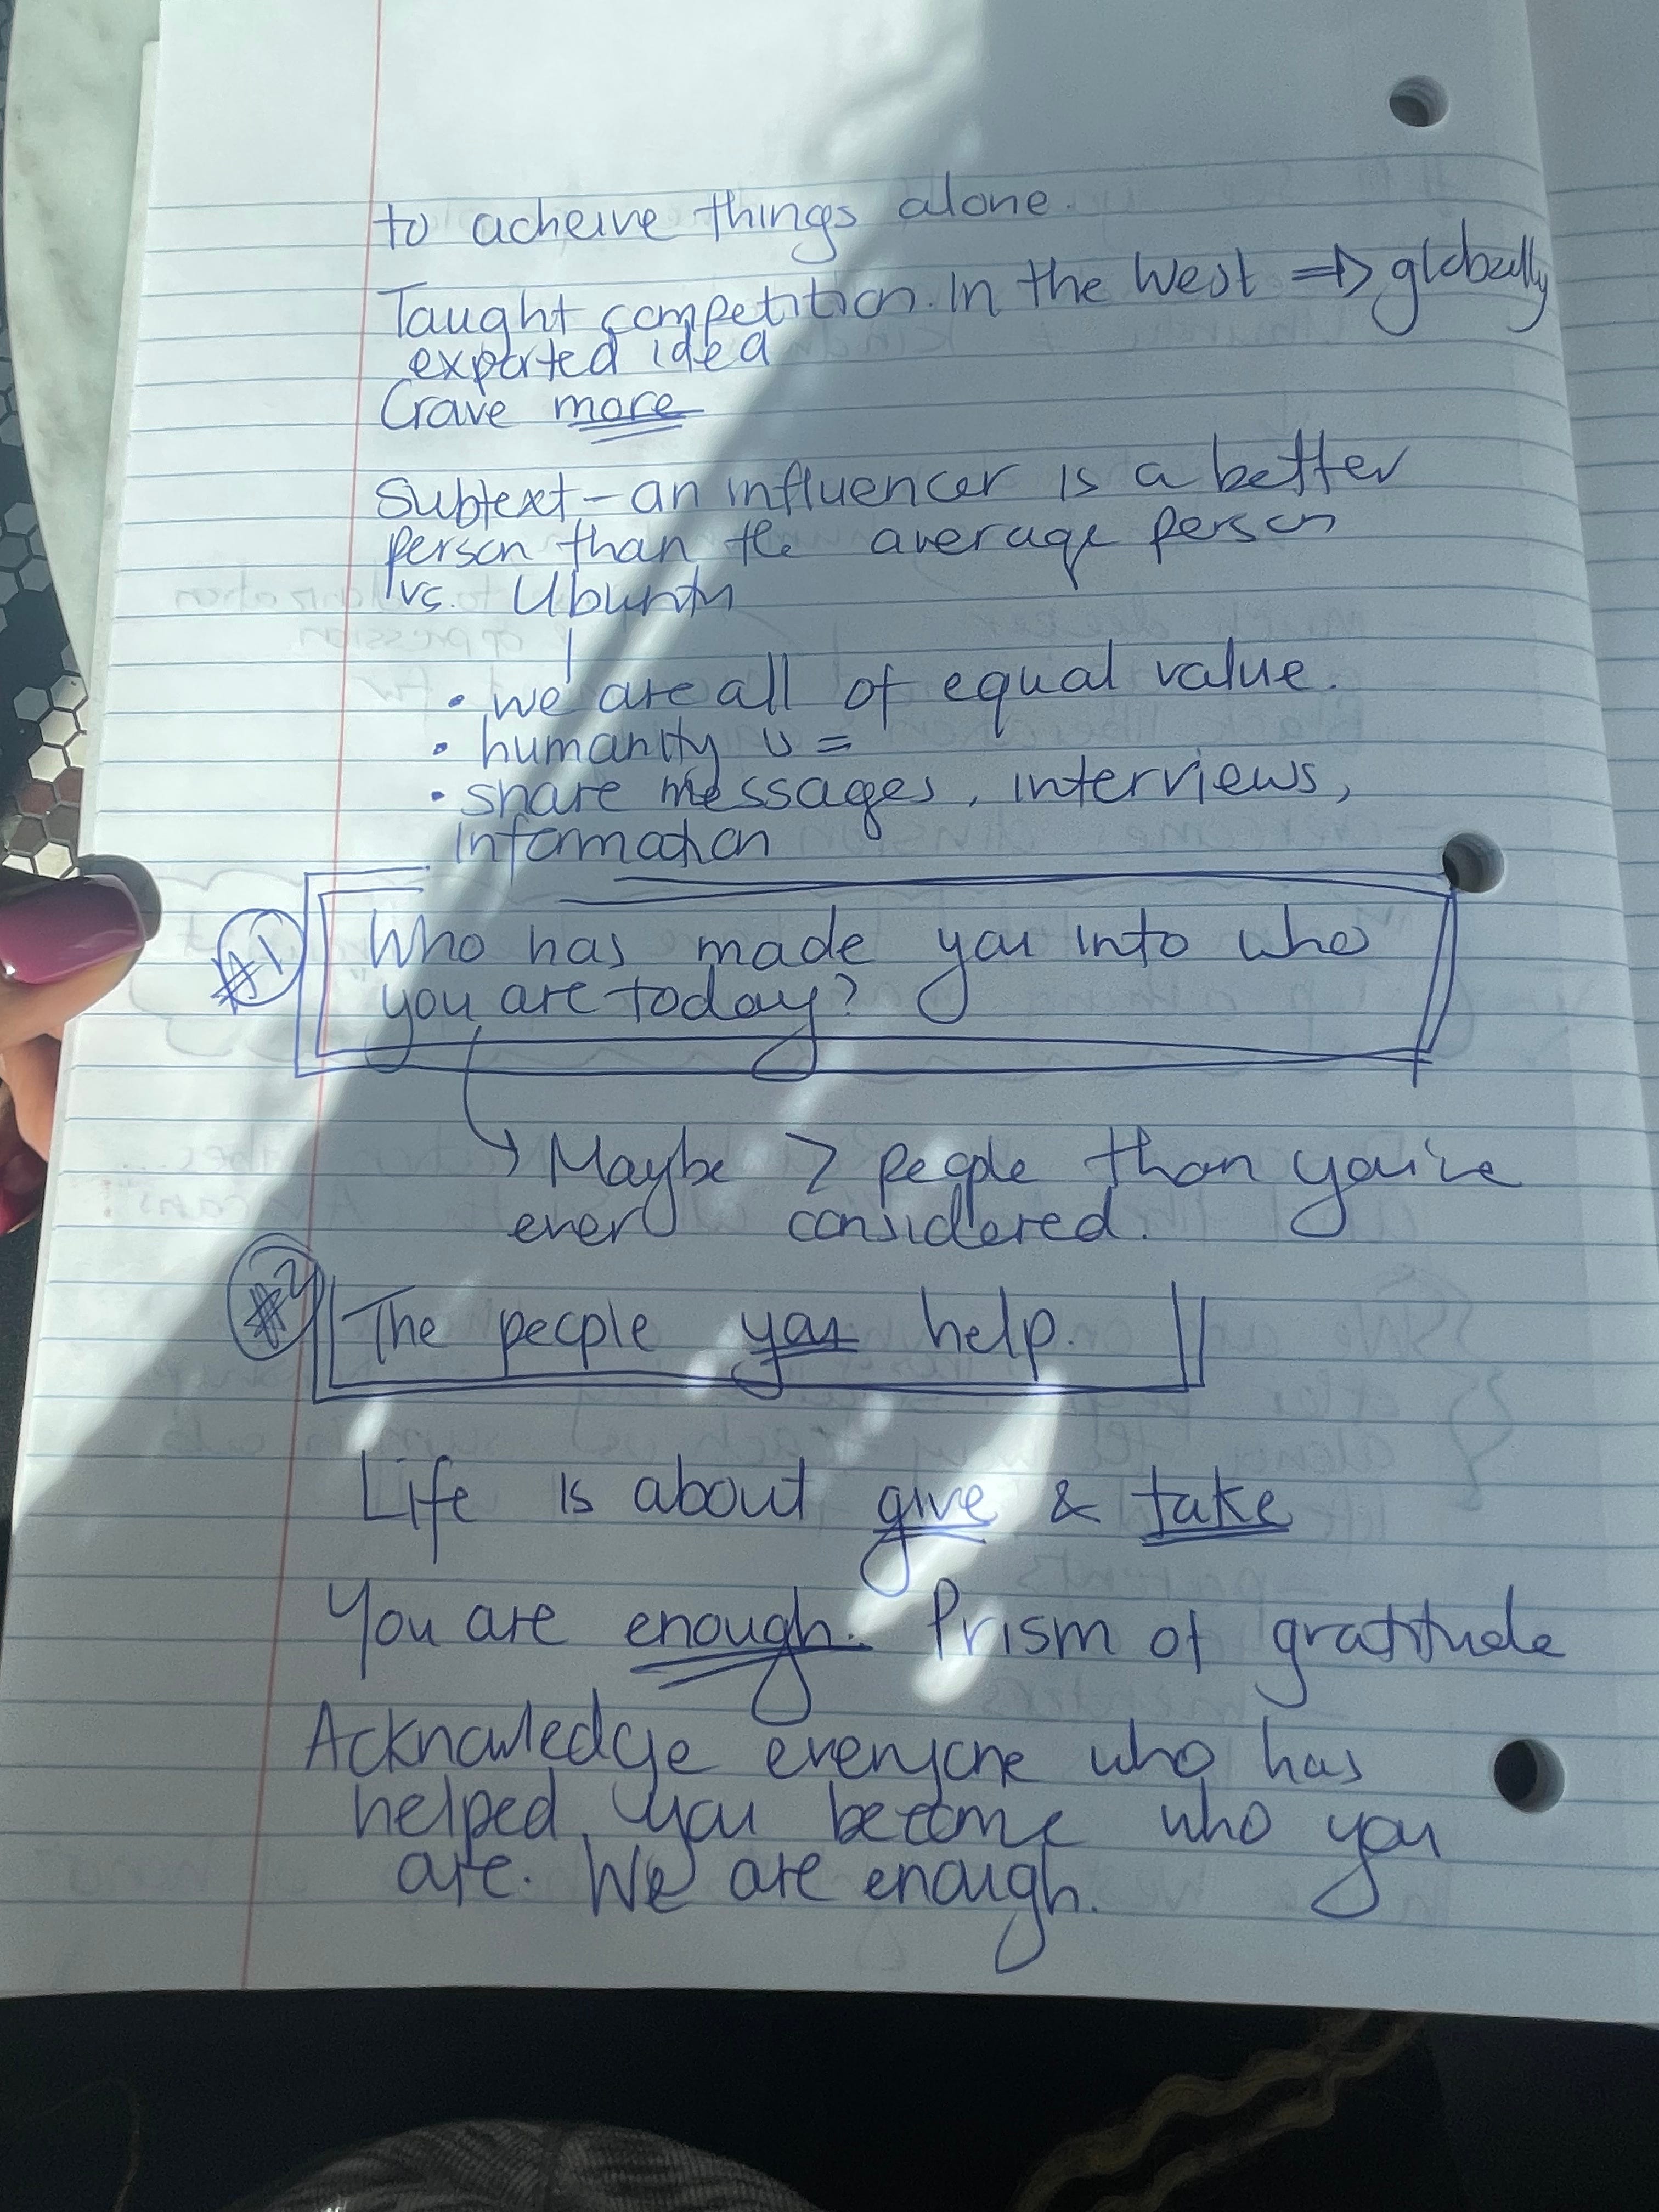 to acheive things alone.
Taught competition. In the West => globally
exported idea
Crave more
Subtext - an influencer is a better
person than the average person
vs. Ubuntu
• we are all of equal value.
• humanity is =
• share messages, interviews,
information
#1 Who has made you into who
you are today?
→ Maybe > people than you've
ever considered.
#2 The people you help.
Life is about give & take
You are enough. Prism of gratitude
Acknowledge everyone who has
helped you become who you
are. We are enough.